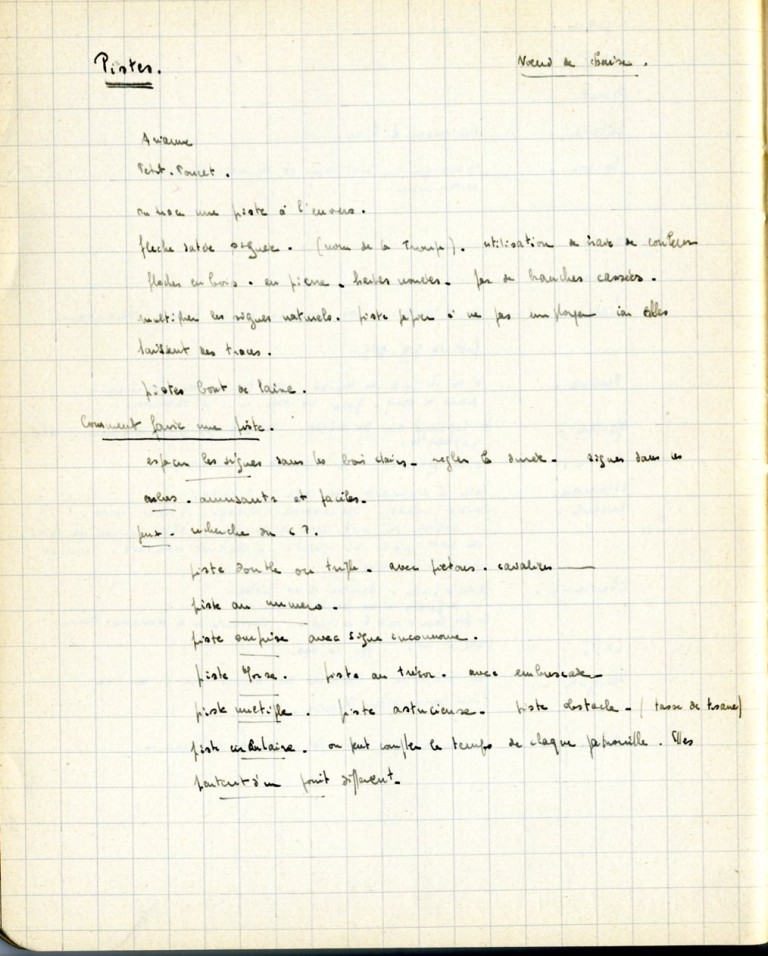 Pistes.
Noeud de chaise.
Arianne
Petit. Poucet.
on trace une piste à l'envers.
fleche . (nom de la Troupe). utilisation de craie de couleurs
fleches en bois. en pierre. herbes nouées. de branches cassées.
multiplier les signes naturels. piste papier à ne pas employer car elles
laissent des traces.
pistes bout de laine.
Comment faire une piste.
espacer les signes dans les bois clairs. regler la durée. signes dans les
arbres. amusants et faciles.
jeux. recherche du C P.
piste double ou triple. avec pietons. cavaliers
piste au numero.
piste surprise avec signe inconnu.
piste Morse. piste au trésor. avec embuscade
piste multiple. piste astucieuse. piste obstacle. (tasse de tisane)
piste circulaire. on peut compter le temps de chaque patrouille. Elles
partent d'un point different.